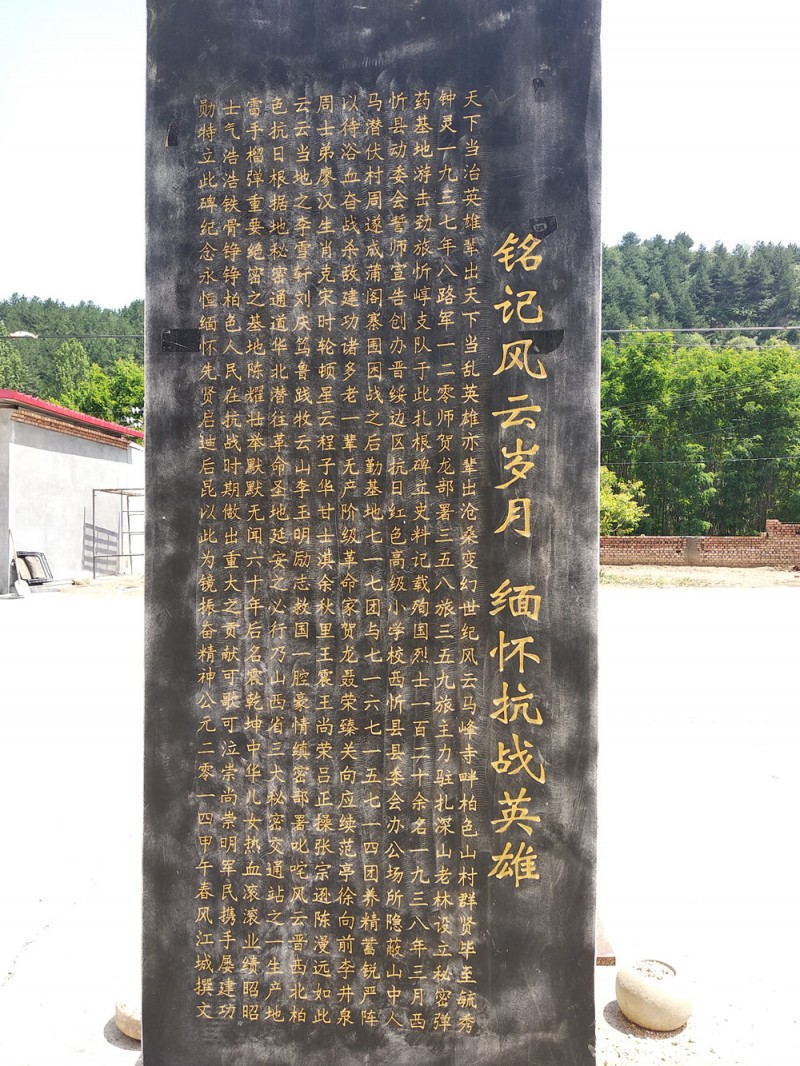 铭记风云岁月 缅怀抗战英雄
天下当治英雄辈出天下当乱英雄亦辈出沧桑变幻世纪风云马峰寺畔柏色山村群贤毕至毓秀
钟灵一九三七年八路军一二零师贺龙部署三五八旅三五九旅主力驻扎深山老林设立秘密弹
药基地游击劲旅忻崞支队于此扎根碑立史料记载殉国烈士一百二十余名一九三八年三月西
忻县动委会誓师宣告创办晋绥边区抗日红色高级小学校西忻县县委会办公场所隐蔽山中人
马潜伏村周遂成蒲阁寨围困战之后勤基地七一七团与七一六七一五七一四团养精蓄锐严阵
以待浴血奋战杀敌建功诸多老一辈无产阶级革命家贺龙聂荣臻关向应续范亭徐向前李井泉
周士弟廖汉生肖克宋时轮顿星云程子华甘士淇余秋里王震王尚荣吕正操张宗逊陈漫远如此
云云当地之李雪轩刘庆笃鲁践牧云山李玉明励志救国一腔豪情缜密部署叱咤风云晋西北柏
色抗日根据地秘密通道华北潜往革命圣地延安之必行乃山西省三大秘密交通站之一生产地
雷手榴弹重要绝密之基地陈耀壮举默默无闻六十年后名震乾坤中华儿女热血滚滚业绩昭昭
士气浩浩铁骨铮铮柏色人民在抗战时期做出重大之贡献可歌可泣崇尚崇明军民携手屡建功
勋特立此碑纪念永恒缅怀先贤启迪后昆以此为镜振奋精神公元二零一四甲午春风江城撰文